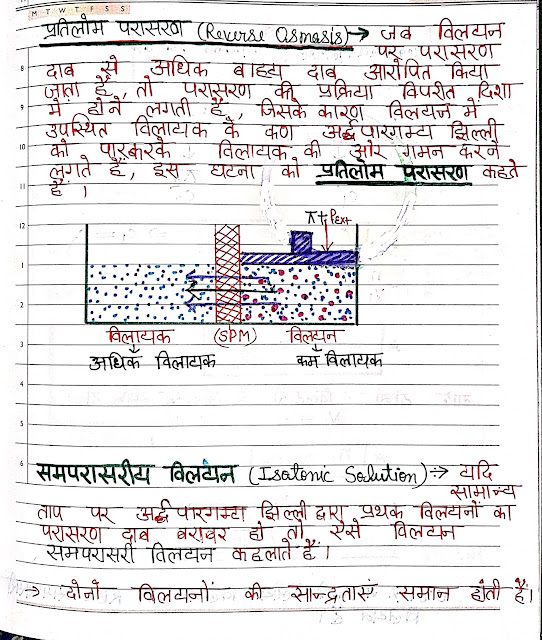 M T W T F S S
प्रतिलोम परासरण (Reverse Osmosis) → जब विलयन
पर परासरण
8 दाब से अधिक बाह्य दाब आरोपित किया
जाता है, तो परासरण की प्रक्रिया विपरीत दिशा
9 में होने लगती है, जिसके कारण विलयन में
उपस्थित विलायक के कण अर्द्धपारगम्य झिल्ली
10 को पारकरके विलायक की ओर गमन करने
लगते हैं, इस घटना को प्रतिलोम परासरण कहते
11 हैं।
12 π+Pext
1
2
विलायक (SPM) विलयन
3
अधिक विलायक कम विलायक
4
5
6
समपरासरीय विलयन (Isotonic Solution) → यदि
सामान्य
ताप पर अर्द्धपारगम्य झिल्ली द्वारा प्रथक विलयनों का
परासरण दाब बराबर हो तो ऐसे विलयन
समपरासरी विलयन कहलाते हैं।
→ दोनों विलयनों की सान्द्रताएं समान होती हैं।